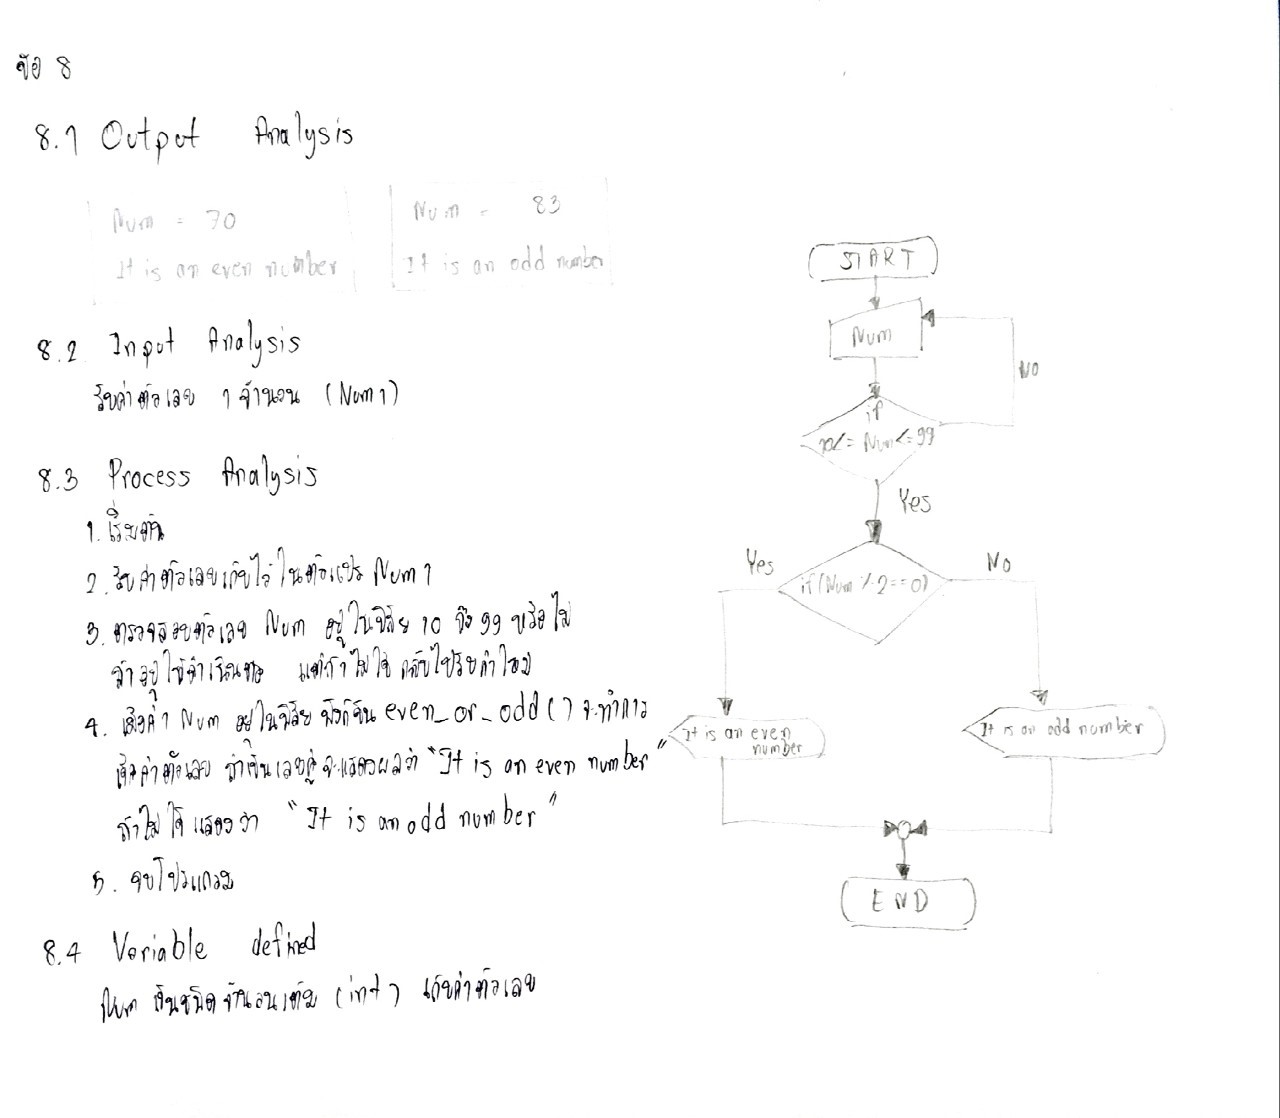 ข้อ 8
8.1 Output Analysis
Num = 70
It is an even number
Num = 83
It is an odd number
8.2 Input Analysis
รับค่าตัวเลข 1 จำนวน (Num1)
8.3 Process Analysis
1. เริ่มต้น
2. รับค่าตัวเลขเก็บไว้ในตัวแปร Num1
3. ตรวจสอบตัวเลข Num อยู่ในพิสัย 10 ถึง 99 หรือไม่
ถ้าอยู่ให้ดำเนินต่อ แต่ถ้าไม่ใช่ กลับไปรับค่าใหม่
4. เมื่อค่า Num อยู่ในพิสัย ฟังก์ชัน even_or_odd() จะทำการ
เช็คค่าตัวเลข ถ้าเป็นเลขคู่จะแสดงผลว่า "It is an even number"
ถ้าไม่ใช่ แสดงว่า "It is an odd number"
5. จบโปรแกรม
8.4 Variable defined
Num เป็นชนิดจำนวนเต็ม (int) เก็บค่าตัวเลข
START
Num
No
if
<= Num <= 99
Yes
if (Num % 2 == 0)
Yes
No
It is an even
number
It is an odd number
END